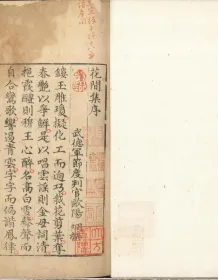 花間集序
武德軍節度判官歐陽炯
鏤玉雕瓊擬化工而迥巧裁花剪葉奪
春艷以爭鮮是以唱雲謠則金母詞清
挹霞醴則穆王心醉名高白雪聲聲而
自合鸞歌響遏青雲字字而偏諧鳳律